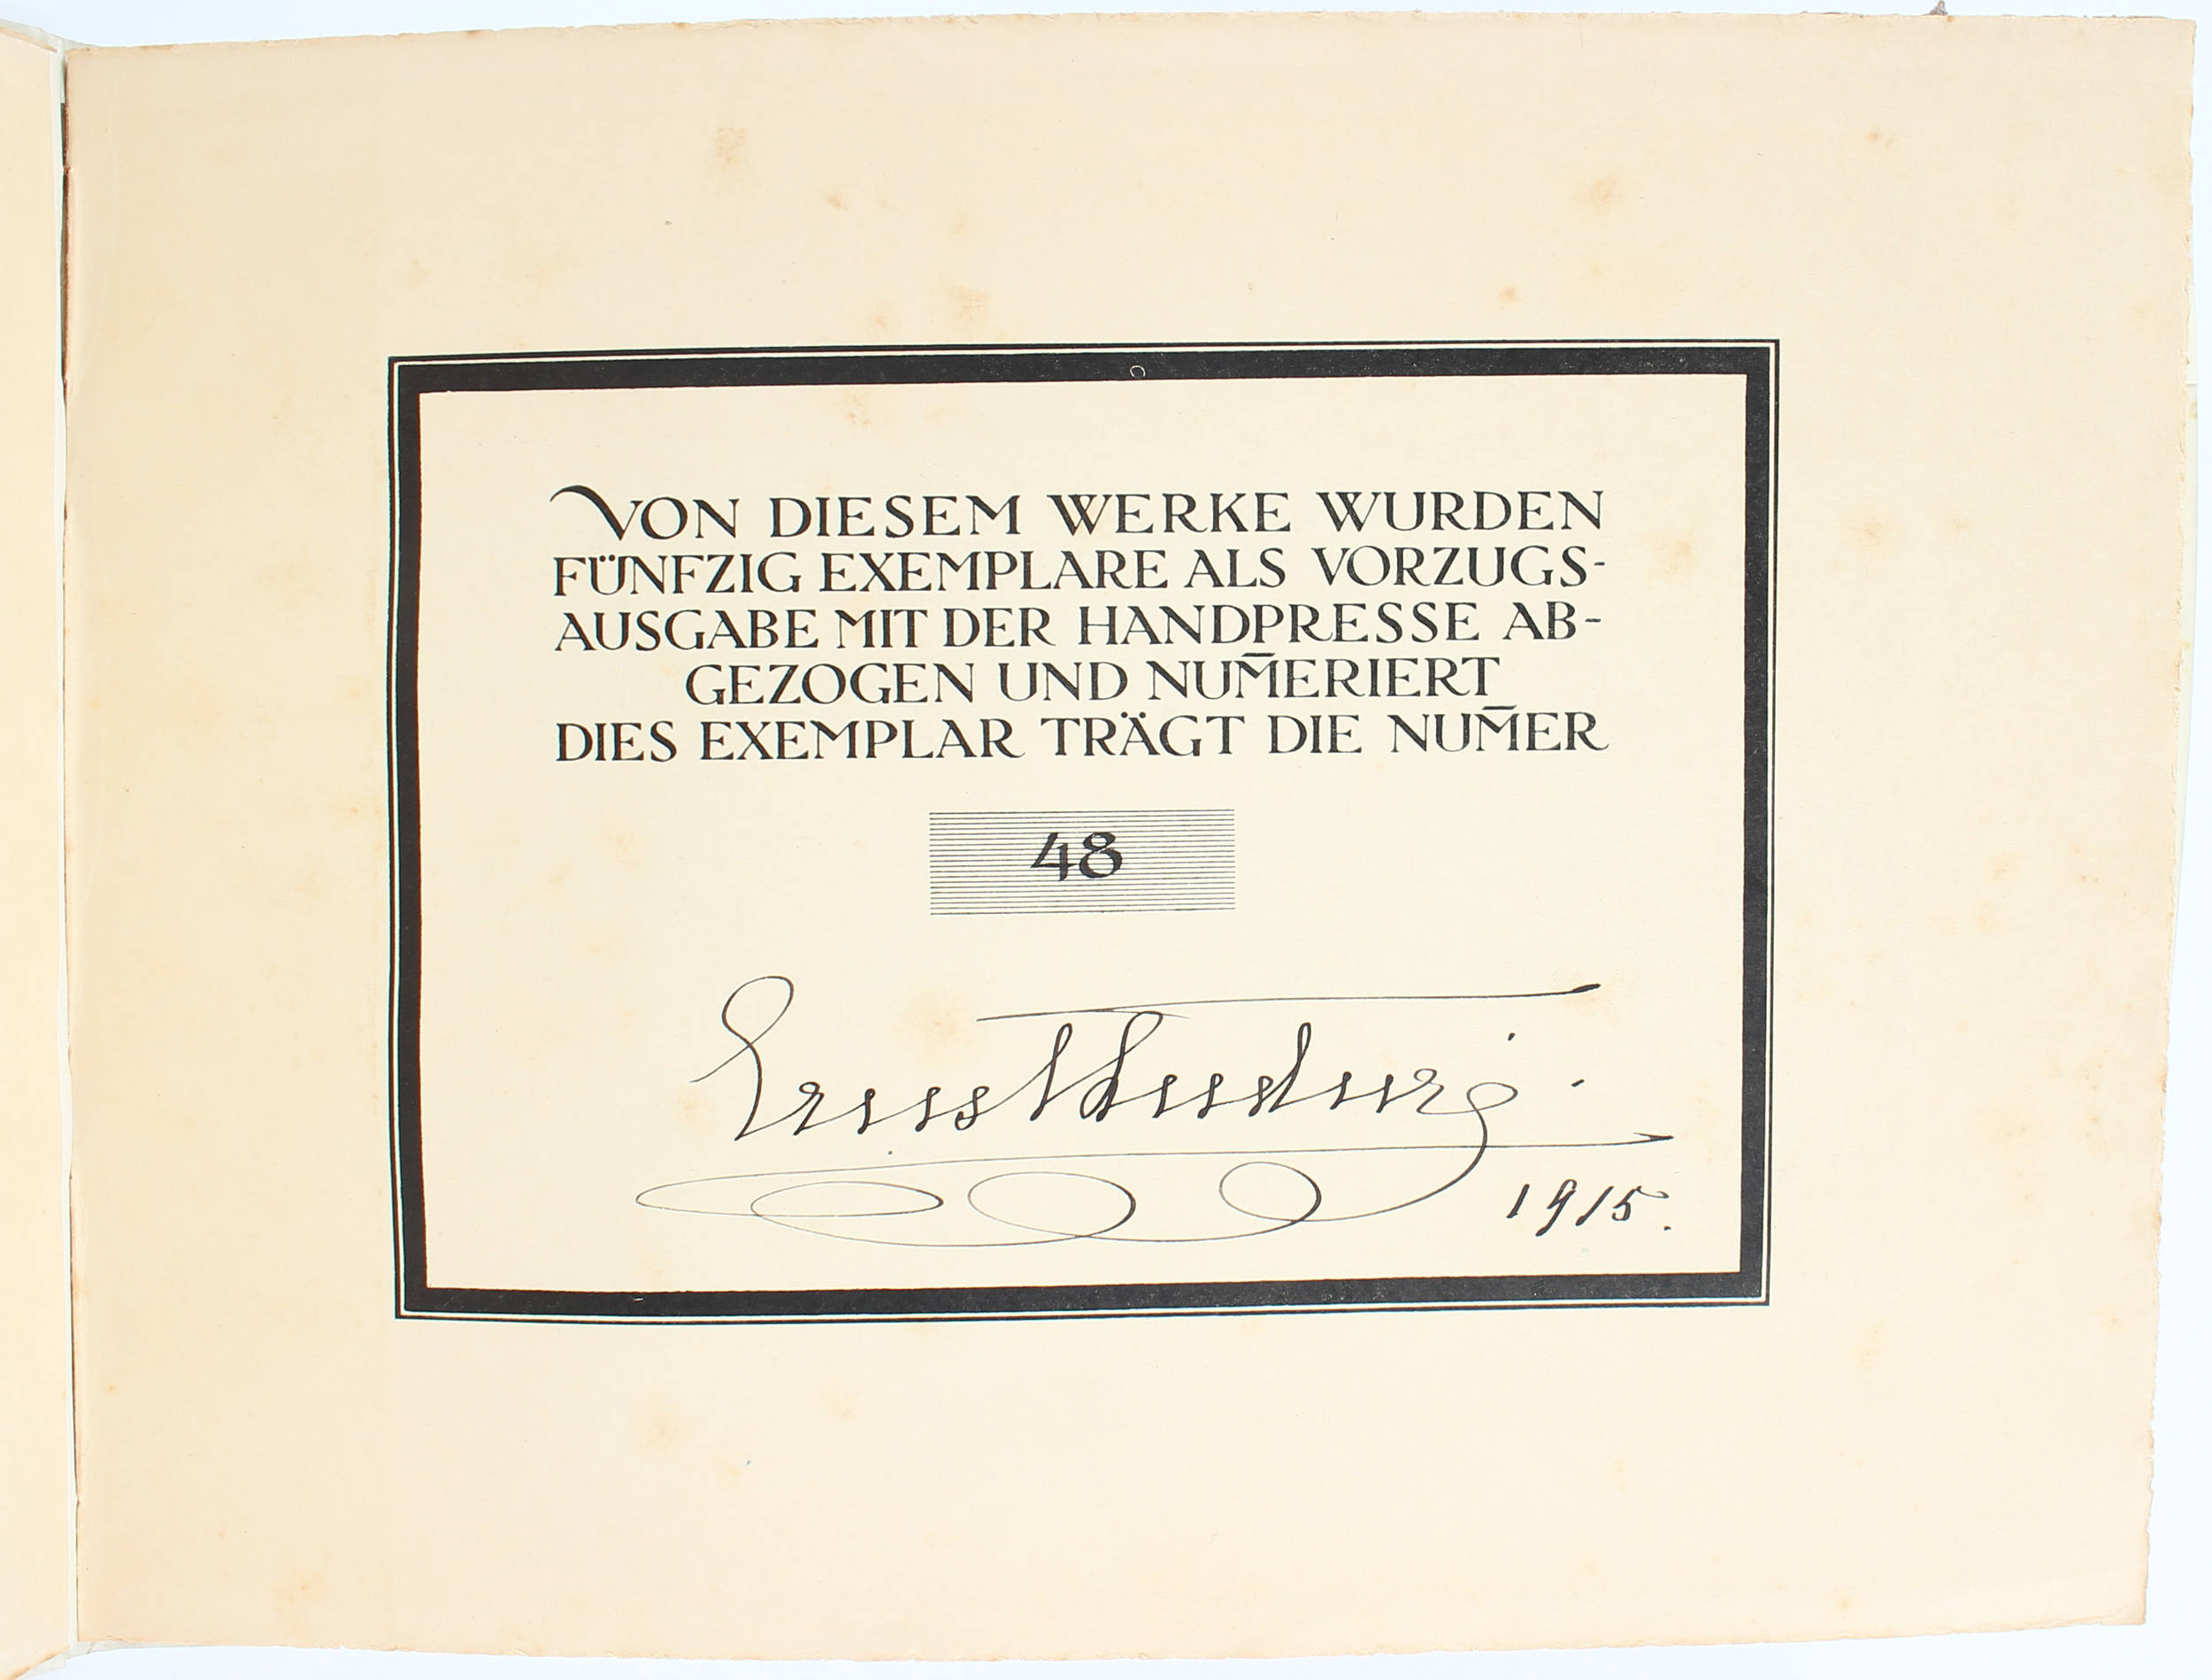 VON DIESEM WERKE WURDEN
FÜNFZIG EXEMPLARE ALS VORZUGS-
AUSGABE MIT DER HANDPRESSE AB-
GEZOGEN UND NUM̄ERIERT
DIES EXEMPLAR TRÄGT DIE NUM̄ER
48
Ernst Ludwig.
1915.